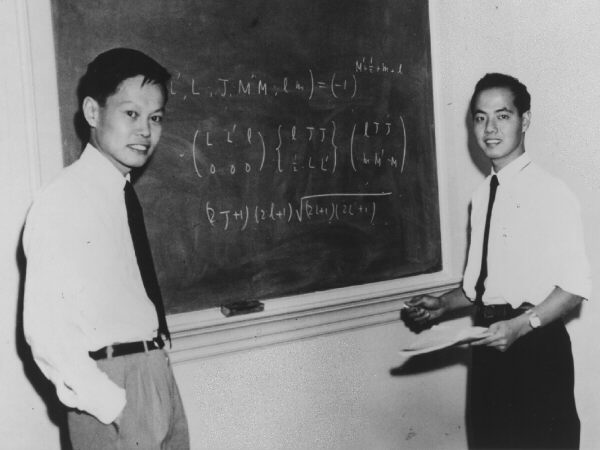 L', L ; J, M' M ; l m ) = (-1)^{M'+½+m+l}
( L L' l ; 0 0 0 ) { l J J ; ½ L L' } ( l J J ; m M' -M )
(2J+1)(2l+1)√(2L+1)(2L'+1)